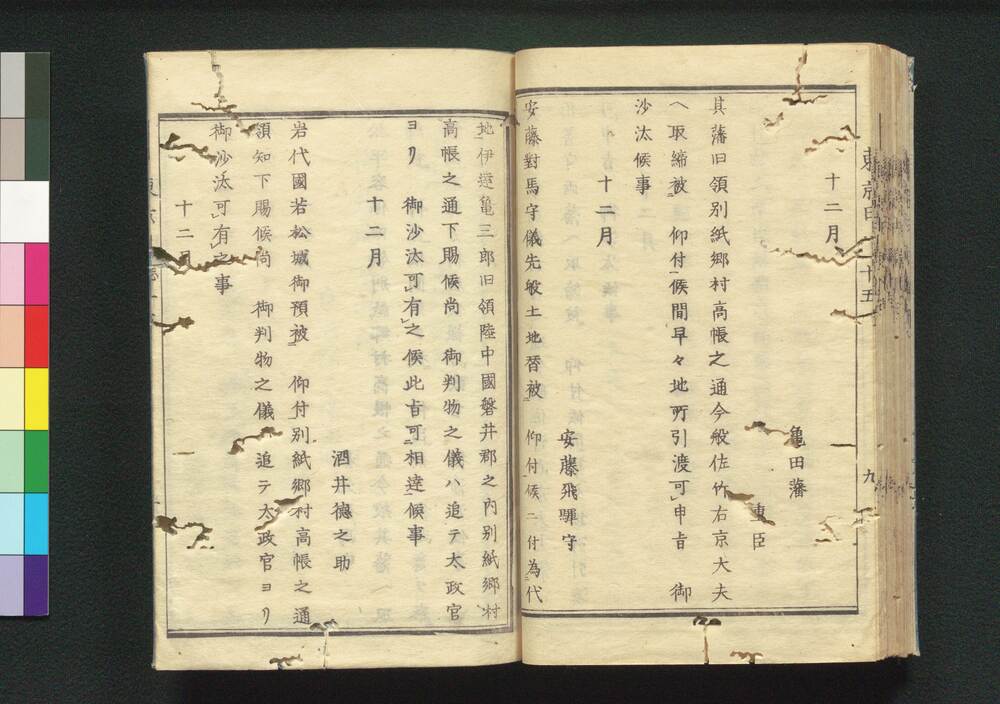 十二月
亀田藩
重臣
其藩旧領別紙郷村高帳之通今般佐竹右京大夫
へ取締被 仰付候間早々地所引渡可申旨 御
沙汰候事
十二月
安藤飛騨守
安藤對馬守儀先般土地替被 仰付候ニ付為代
地伊達亀三郎旧領陸中國磐井郡之内別紙郷村
高帳之通下賜候尚 御判物之儀ハ追テ太政官
ヨリ 御沙汰可有之候此旨可相達候事
十二月
酒井徳之助
岩代國若松城御預被 仰付別紙郷村高帳之通
領知下賜候尚 御判物之儀 追テ太政官ヨリ
御沙汰可有之事
十二月
九